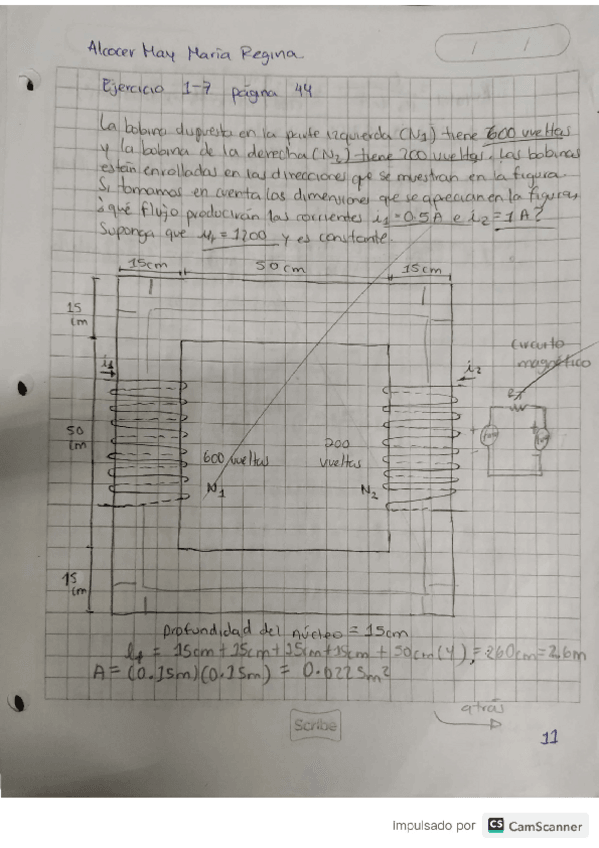 Alcocer May Maria Regina
Ejercicio 1-7 página 44
La bobina dispuesta en la parte izquierda (N1) tiene 600 vueltas
y la bobina de la derecha (N2) tiene 200 vueltas. Las bobinas
están enrolladas en las direcciones que se muestran en la figura.
Si tomamos en cuenta las dimensiones que se aprecian en la figura,
¿qué flujo producirán las corrientes i1 = 0.5A e i2 = 1A?
Suponga que μr = 1200 y es constante.
15cm 50cm 15cm
15 cm
i1
i2
circuito magnético
50 cm
600 vueltas
200 vueltas
N1
N2
15 cm
Profundidad del núcleo = 15cm
= 15cm + 15cm + 15cm + 15cm + 50cm (4) = 260cm = 2.6m
A = (0.15m)(0.15m) = 0.0225m²
atrás
Scribe
11
Impulsado por CS CamScanner